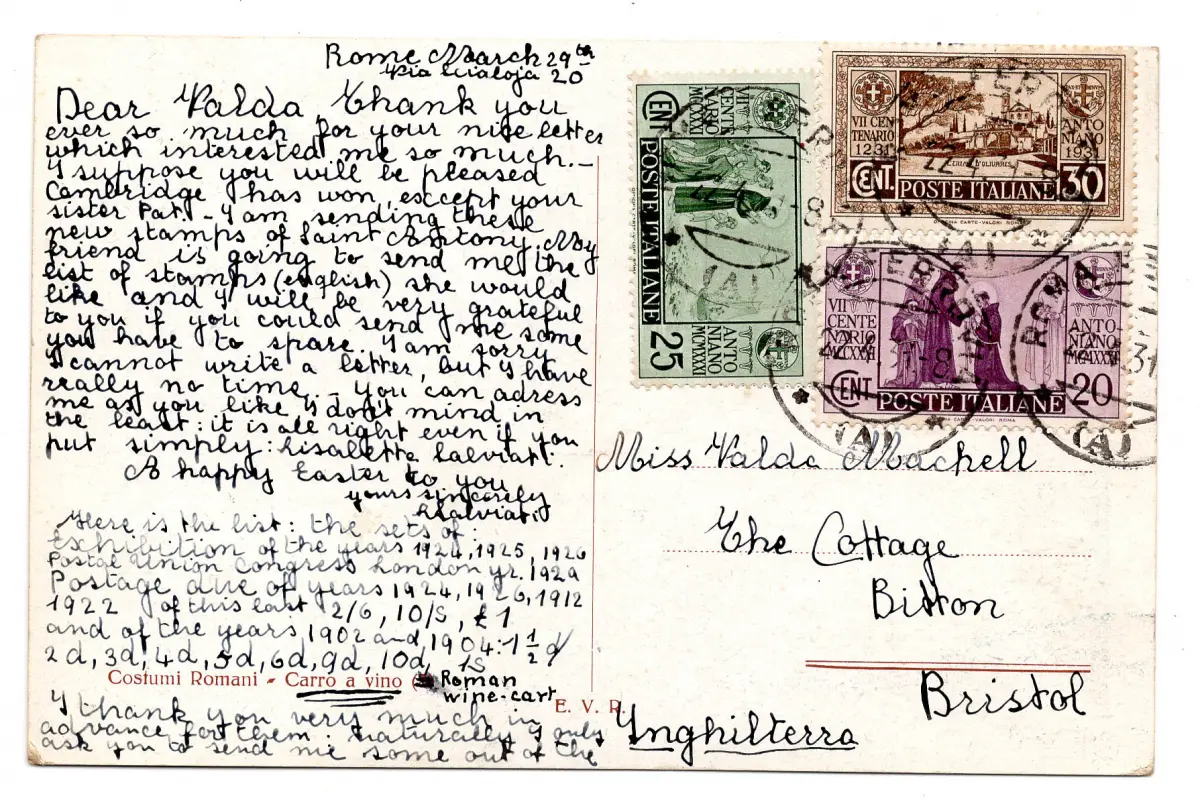 Rome March 29th
Via Scialoja 20
Dear Valda Thank you
ever so much for your nice letter
which interested me so much.-
I suppose you will be pleased
Cambridge has won, except your
sister Pat. - I am sending these
new stamps of Saint Antony. My
friend is going to send me the
list of stamps (english) she would
like and I will be very grateful
to you if you could send me some
you have to spare. I am sorry
I cannot write a letter, but I have
really no time. - You can adress
me as you like I don't mind in
the least: it is all right even if you
put simply: Lisaletta Salviati.
A happy Easter to you
yours sincerely
LSalviati
Here is the list: the sets of:
Exhibition of the years 1924, 1925, 1926
Postal Union Congress London yr. 1929
Postage due of years 1924, 1926, 1912
1922 of this last 2/6, 10/S, £1
and of the years 1902 and 1904: 1 1/2 d
2d, 3d, 4d, 5d, 6d, 9d, 10d, 1s
Costumi Romani - Carro a vino (
Roman
wine-cart
E. V. R.
I thank you very much in
advance for them. Naturally I only
ask you to send me some out of the
CENT 25
POSTE ITALIANE
VII CENTENARIO MCCXXXI
ANTONIANO MCMXXXI
VII CENTENARIO 1231
ANTONIANO 1931
CENT. 30
POSTE ITALIANE
VII CENTENARIO MCCXXXI
ANTONIANO MCMXXXI
CENT 20
POSTE ITALIANE
ROMA
(A)
Miss Valda Machell
The Cottage
Bitton
Bristol
Inghilterra